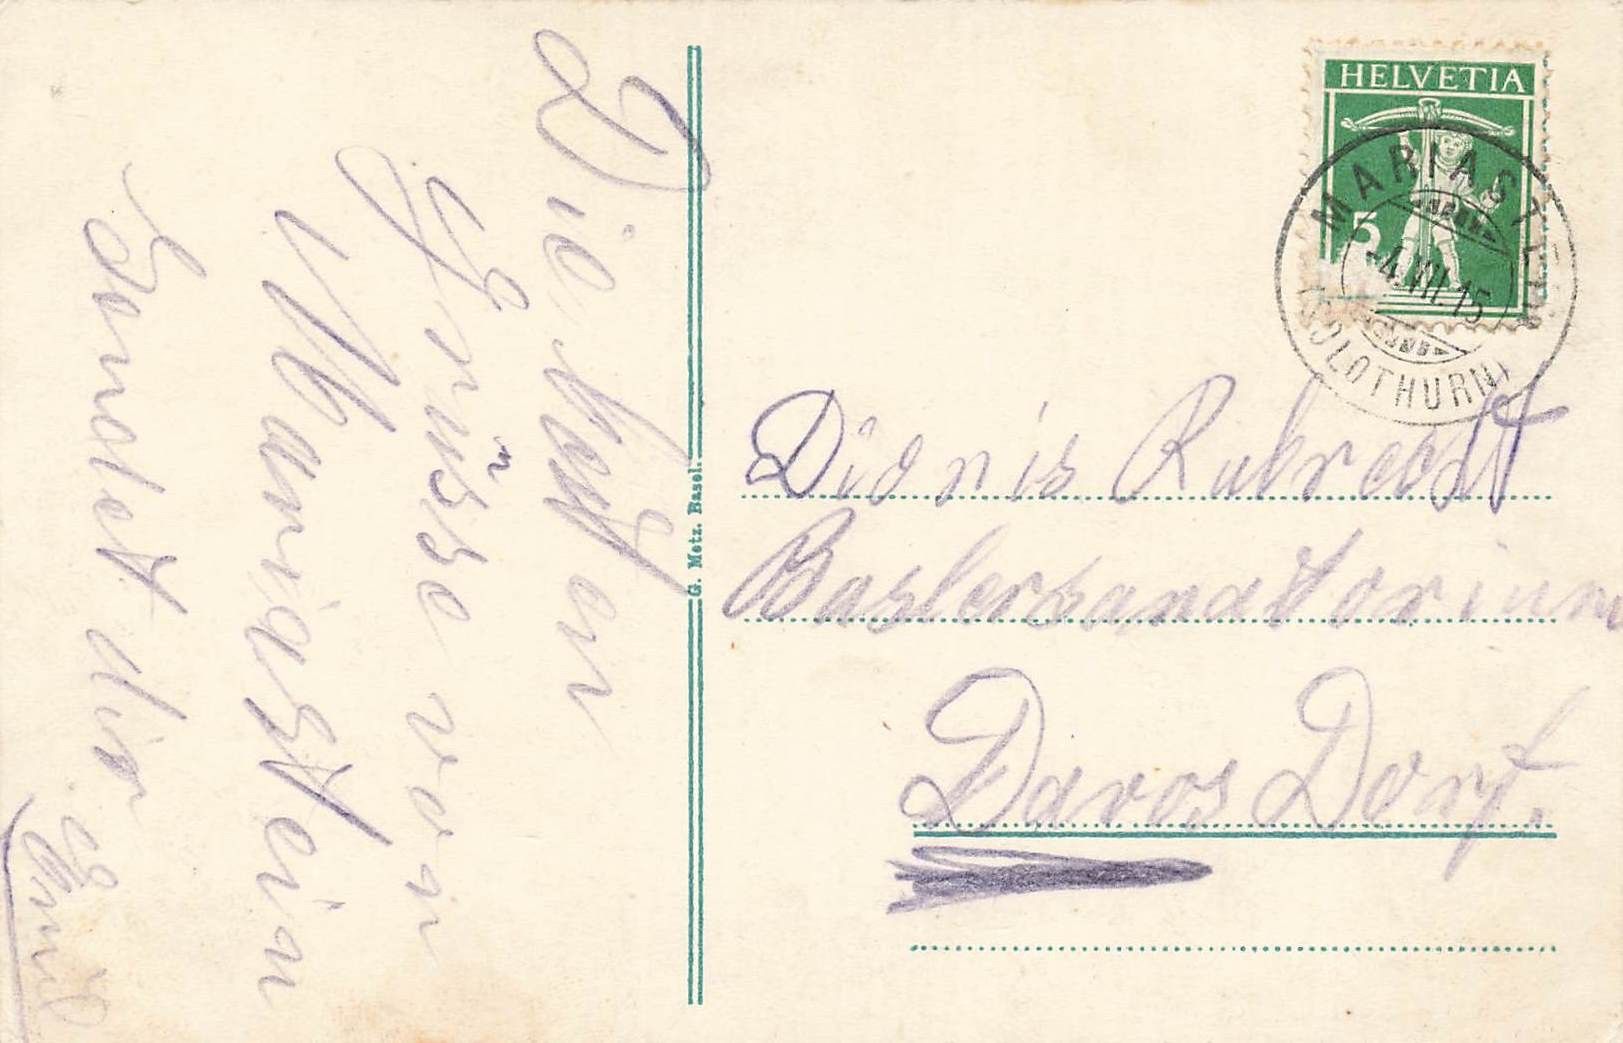 Die besten
Grüsse von
Mariastein
sendet dir
Emil
G. Metz. Basel.
HELVETIA
5
MARIASTEIN
-4.VII.15
(SOLOTHURN)
Dionis Rubrecht
Baslersanatorium
Davos Dorf.